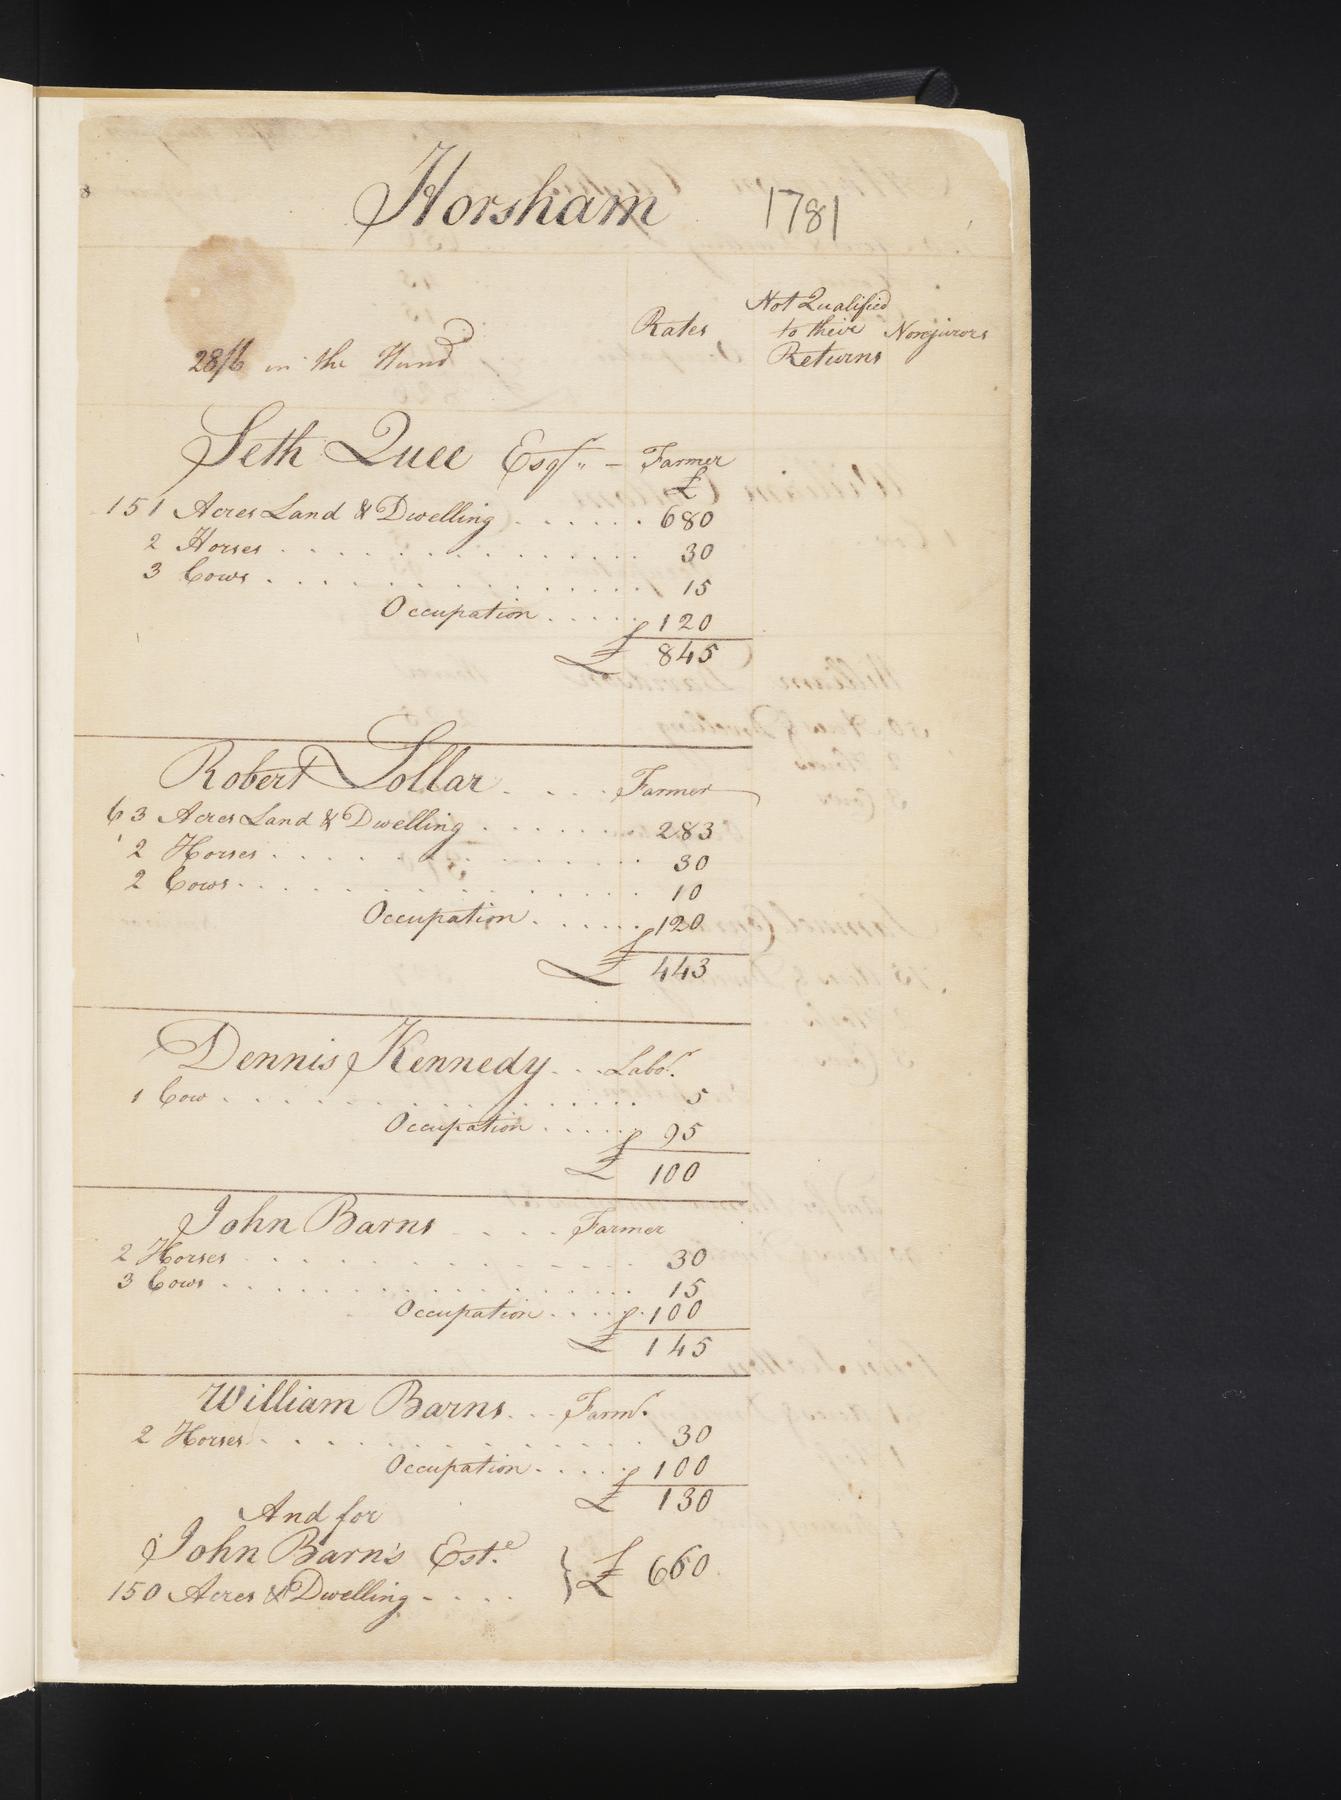 Horsham 1781
Rates
Not Qualified
to their
Returns
Nonjurors
28/6 in the Hund
Seth Quee Esqr. — Farmer
£
151 Acres Land & Dwelling . . . . . . 680
2 Horses . . . . . . . . . . . . . 30
3 Cows . . . . . . . . . . . . . 15
Occupation . . . . . 120
£ 845
Robert Lollar . . . . Farmer
63 Acres Land & Dwelling . . . . . . 283
2 Horses . . . . . . . . . . . . . 30
2 Cows . . . . . . . . . . . . . 10
Occupation . . . . . 120
£ 443
Dennis Kennedy . . . Labr.
1 Cow . . . . . . . . . . . . . 5
Occupation . . . . . 95
£ 100
John Barns . . . . Farmer
2 Horses . . . . . . . . . . . . . 30
3 Cows . . . . . . . . . . . . . 15
Occupation . . . . . 100
£ 145
William Barns . . . Farmr.
2 Horses . . . . . . . . . . . . . 30
Occupation . . . . . 100
£ 130
And for
John Barn's Este.
150 Acres & Dwelling . . . . } £ 660